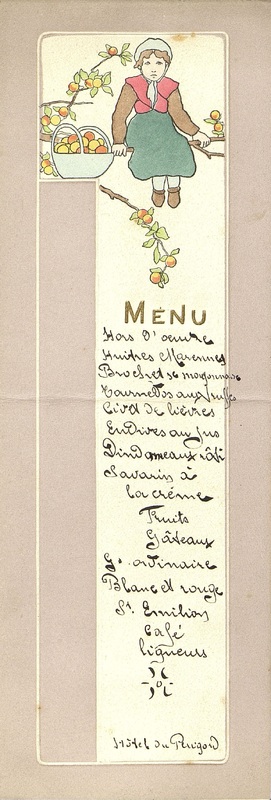 MENU
Hors d'oeuvre
Huitres Marennes
Brochet se mayonnaise
Tournedos aux truffes
Civet de lièvres
Endives au jus
Dindonneaux rôti
Savarin à
la crème
Fruits
Gâteaux
Gd ordinaire
Blanc et rouge
St. Emilion
Café
liqueurs
Hôtel du Périgord